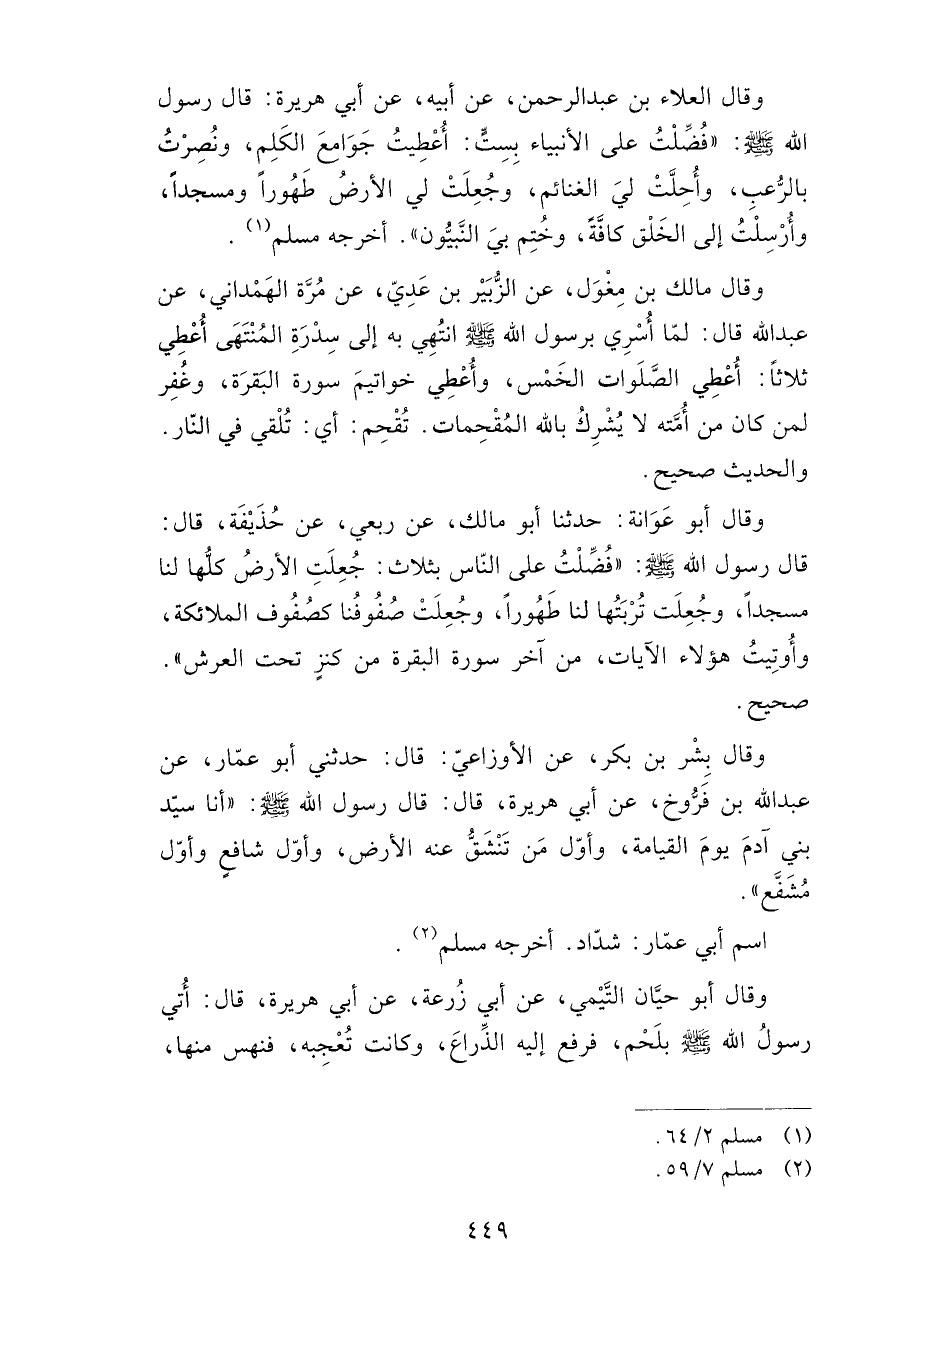 وقال العلاء بن عبدالرحمن، عن أبيه، عن أبي هريرة: قال رسول
الله ﷺ: «فُضِّلْتُ على الأنبياء بِستٍّ: أُعْطِيتُ جَوَامعَ الكَلِم، ونُصِرْتُ
بالرُّعبِ، وأُحِلَّتْ ليَ الغنائم، وجُعِلَتْ لي الأرضُ طَهُوراً ومسجداً،
وأُرْسِلْتُ إلى الخَلْق كافَّةً، وخُتِم بيَ النَّبيُّون». أخرجه مسلم(١) .
وقال مالك بن مِغْوَل، عن الزُّبَيْر بن عَدِيّ، عن مُرَّة الهَمْداني، عن
عبدالله قال: لمّا أُسْرِي برسول الله ﷺ انتُهِي به إلى سِدْرَةِ المُنْتَهَى أُعْطِي
ثلاثاً: أُعْطِي الصَّلوات الخَمْس، وأُعْطِي خواتيمَ سورة البَقرَة، وغُفِر
لمن كان من أُمَّته لا يُشْرِكُ بالله المُقْحِمات. تُقْحِم: أي: تُلْقي في النّار.
والحديث صحيح.
وقال أبو عَوَانة: حدثنا أبو مالك، عن ربعي، عن حُذَيْفَة، قال:
قال رسول الله ﷺ: «فُضِّلْتُ على النّاس بثلاث: جُعِلَتِ الأرضُ كلُّها لنا
مسجداً، وجُعِلَت تُرْبَتُها لنا طَهُوراً، وجُعِلَتْ صُفُوفُنا كصُفُوف الملائكة،
وأُوتِيتُ هؤلاء الآيات، من آخر سورة البقرة من كنزٍ تحت العرش».
صحيح.
وقال بِشْر بن بكر، عن الأوزاعيّ: قال: حدثني أبو عمّار، عن
عبدالله بن فَرُّوخ، عن أبي هريرة، قال: قال رسول الله ﷺ: «أنا سيّد
بني آدمَ يومَ القيامة، وأوّل مَن تَنْشَقُّ عنه الأرض، وأوّل شافعٍ وأوّل
مُشَفَّع».
اسم أبي عمّار: شدّاد. أخرجه مسلم(٢) .
وقال أبو حيَّان التَّيْمي، عن أبي زُرعة، عن أبي هريرة، قال: أُتي
رسولُ الله ﷺ بلَحْم، فرفع إليه الذِّراعَ، وكانت تُعْجِبه، فنهس منها،
(١) مسلم ٢/ ٦٤.
(٢) مسلم ٧/ ٥٩.
٤٤٩